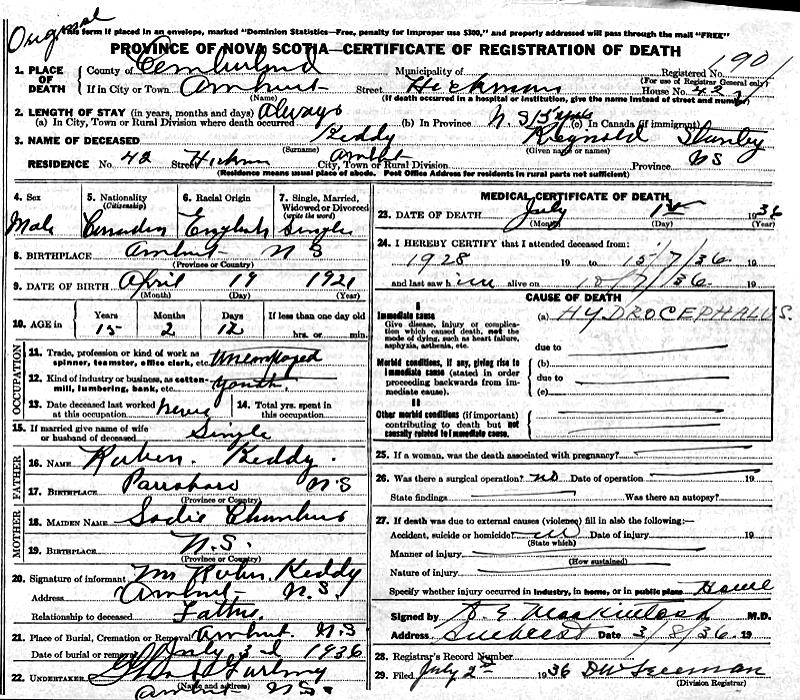 Original
This form if placed in an envelope, marked "Dominion Statistics—Free, penalty for improper use $300," and properly addressed will pass through the mail "FREE"
PROVINCE OF NOVA SCOTIA—CERTIFICATE OF REGISTRATION OF DEATH
1. PLACE OF DEATH County of Cumberland Municipality of Registered No. 1901
(For use of Registrar General only)
If in City or Town Amherst Street Hickman House No. 42
(Name) (If death occurred in a hospital or institution, give the name instead of street and number)
2. LENGTH OF STAY (in years, months and days) always
(a) In City, Town or Rural Division where death occurred (b) In Province N.S. 15 (c) In Canada (if immigrant)
3. NAME OF DECEASED Reddy Reginald Stanley
(Surname) (Given name or names)
RESIDENCE No. 42 Street Hickman City, Town or Rural Division Amherst Province NS
(Residence means usual place of abode. Post Office Address for residents in rural parts not sufficient)
4. Sex 5. Nationality (Citizenship) 6. Racial Origin 7. Single, Married, Widowed or Divorced (write the word)
Male Canadian English Single
8. BIRTHPLACE Amherst N S
(Province or Country)
9. DATE OF BIRTH April 19 1921
(Month) (Day) (Year)
10. AGE in Years Months Days If less than one day old
15 2 12 hrs. or min.
OCCUPATION
11. Trade, profession or kind of work as spinner, teamster, office clerk, etc. Unemployed
12. Kind of industry or business, as cotton-mill, lumbering, bank, etc. Youth
13. Date deceased last worked at this occupation never 14. Total yrs. spent in this occupation
15. If married give name of wife or husband of deceased Single
FATHER
16. NAME Ruben Reddy
17. BIRTHPLACE Parrsboro N.S
(Province or Country)
MOTHER
18. MAIDEN NAME Sadie Chambers
19. BIRTHPLACE N.S.
(Province or Country)
20. Signature of informant Mr Ruben Reddy
Address Amherst N.S.
Relationship to deceased Father
21. Place of Burial, Cremation or Removal Amherst N.S
Date of burial or removal July 3d 1936
22. UNDERTAKER
(Name and address)
Amherst N.S.
MEDICAL CERTIFICATE OF DEATH
23. DATE OF DEATH July 1st 1936
(Month) (Day) (Year)
24. I HEREBY CERTIFY that I attended deceased from:
1928 19 to 15/7/36 19
and last saw him alive on 10/7/36 19
CAUSE OF DEATH
I
Immediate cause (a) HYDROCEPHALUS.
Give disease, injury or complication which caused death, not the mode of dying, such as heart failure, asphyxia, asthenia, etc.
due to
Morbid conditions, if any, giving rise to immediate cause (stated in order proceeding backwards from immediate cause).
(b)
due to
(c)
II
Other morbid conditions (if important) contributing to death but not causally related to immediate cause.
25. If a woman, was the death associated with pregnancy?
26. Was there a surgical operation? no Date of operation 19
State findings Was there an autopsy?
27. If death was due to external causes (violence) fill in also the following:—
Accident, suicide or homicide? Date of injury 19
(State which)
Manner of injury
(How sustained)
Nature of injury
Specify whether injury occurred in industry, in home, or in public place Home
Signed by M.D.
Address Amherst Date 3/8/36. 19
28. Registrar's Record Number
29. Filed July 2nd 1936 DW Freeman
(Division Registrar)